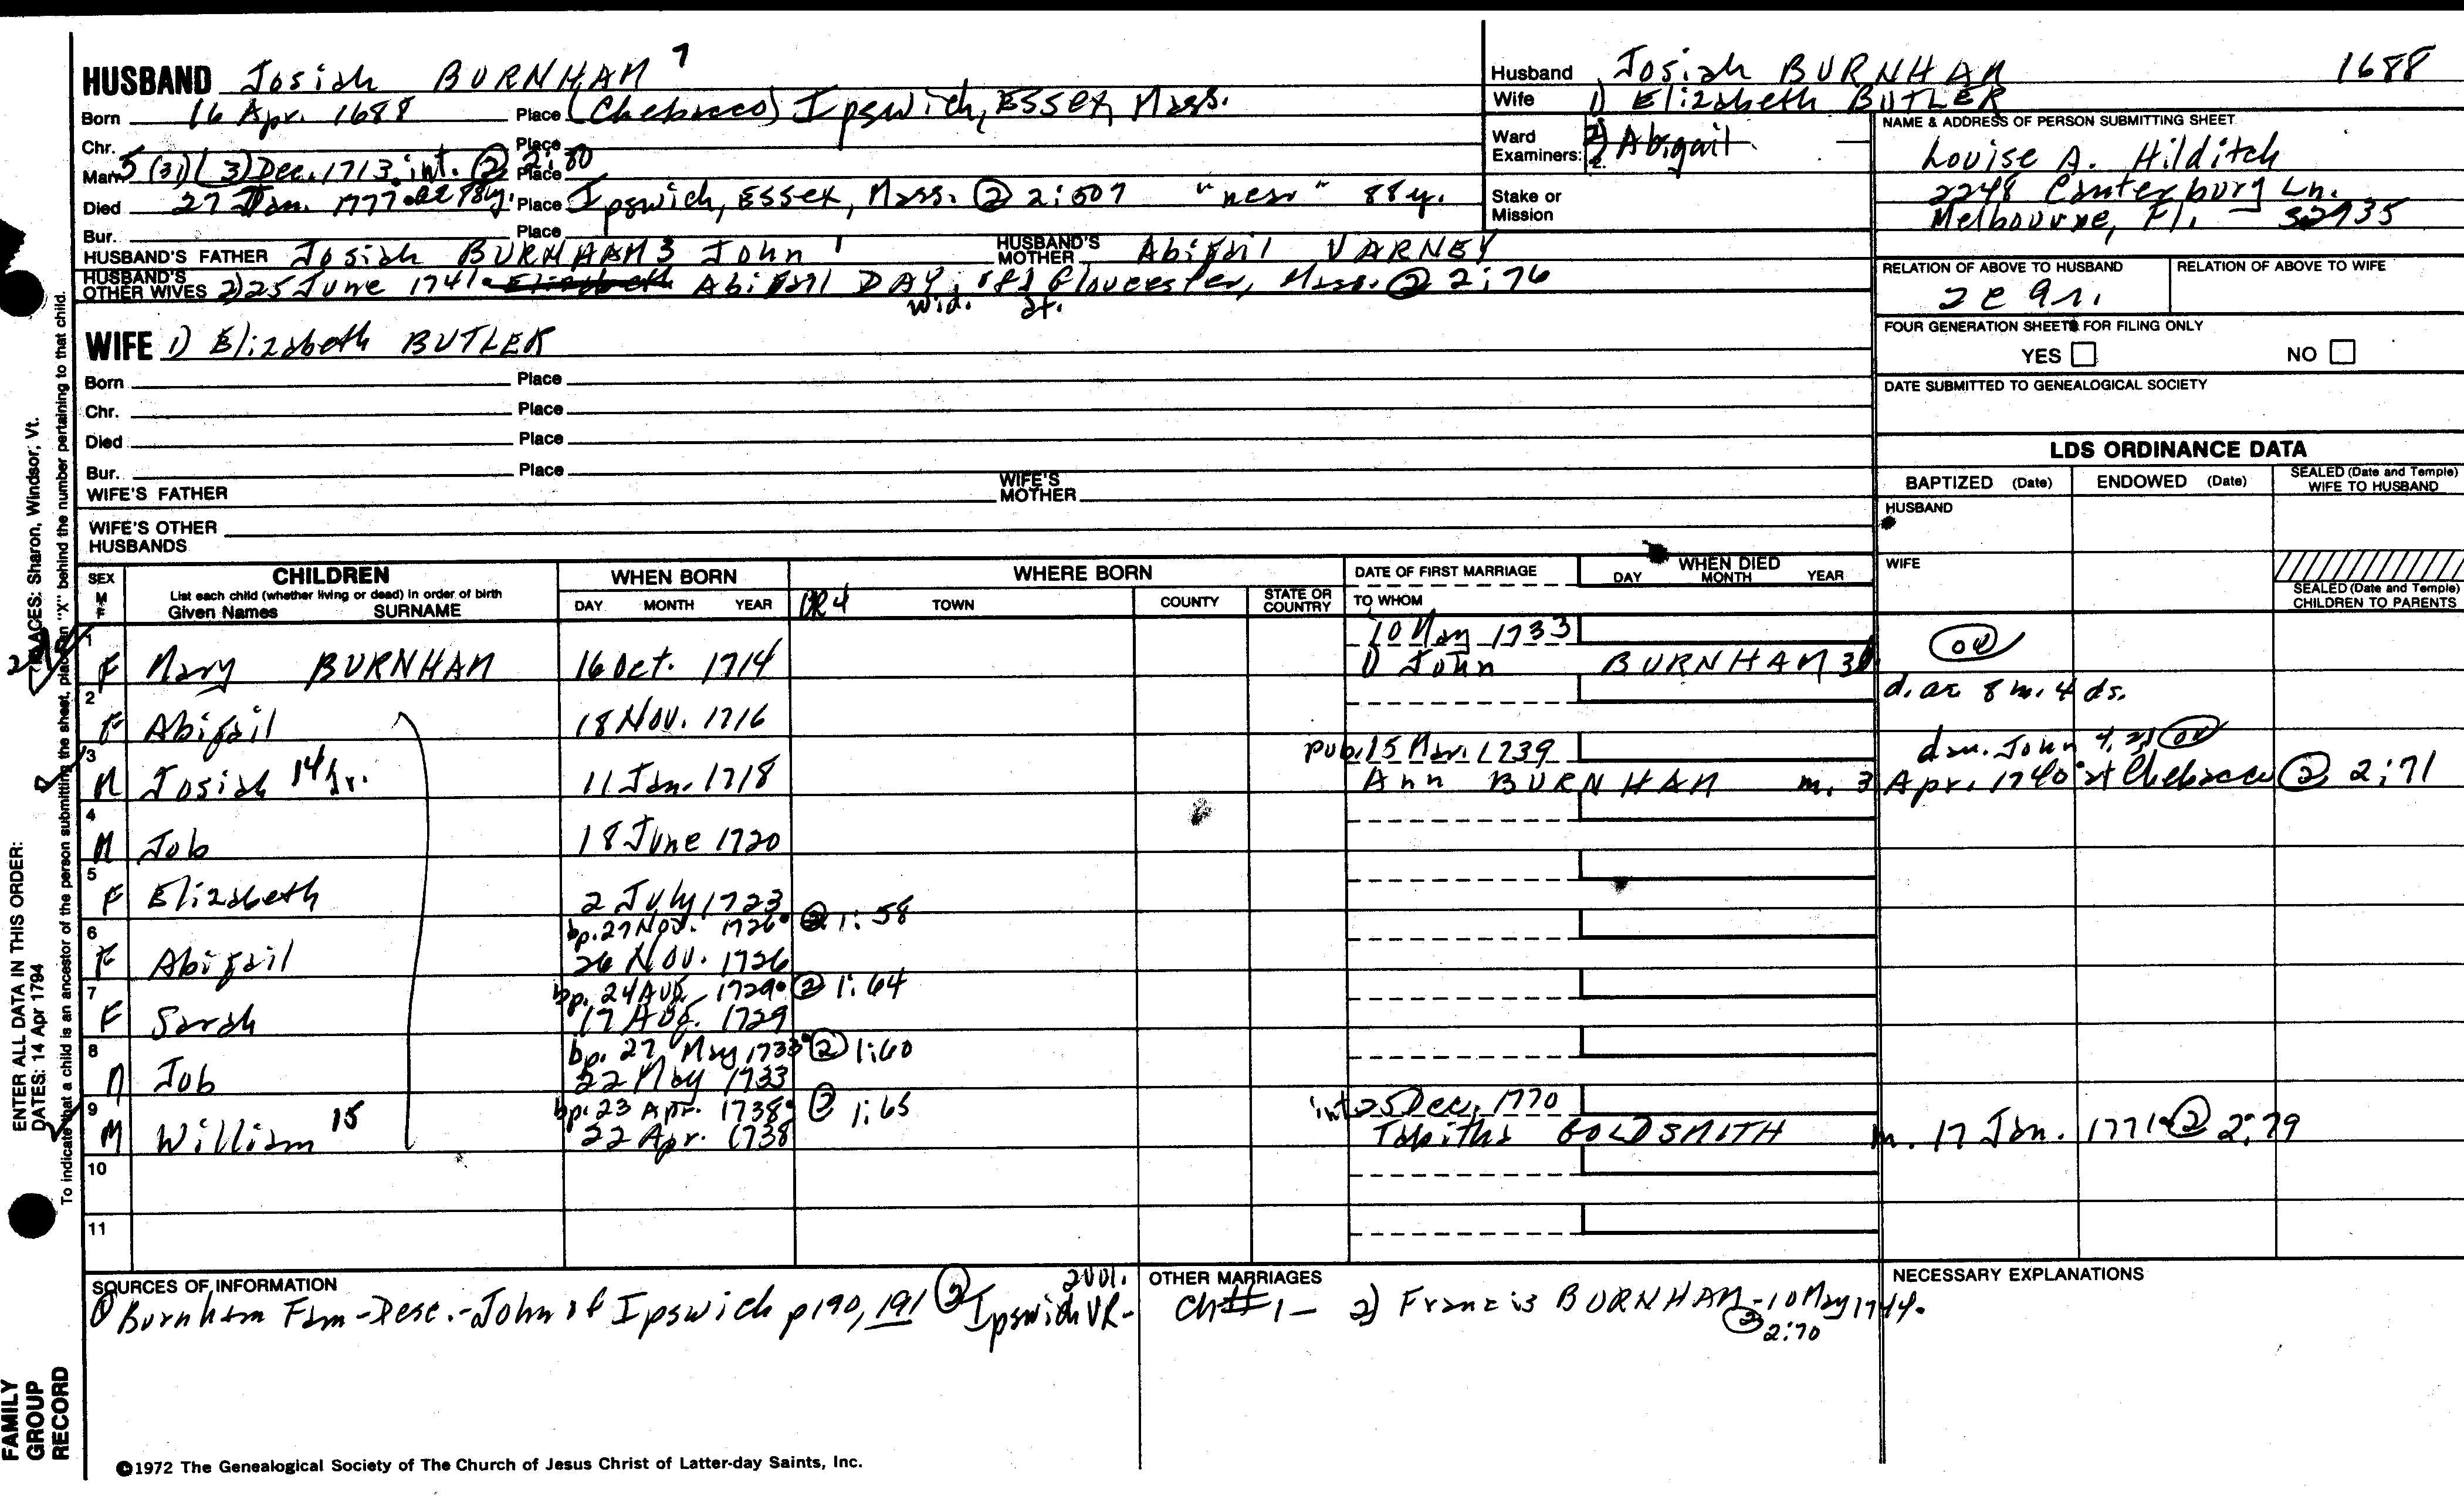 HUSBAND Josiah BURNHAM 7
Born 16 Apr. 1688 Place (Chebacco) Ipswich, Essex, Mass.
Chr. Place
Marr. 5 (31) (3) Dec. 1713 int. ② 2:80 Place
Died 27 Jan. 1777 ae 78y. Place Ipswich, Essex, Mass. ② 2:507 "near" 88y.
Bur. Place
HUSBAND'S FATHER Josiah BURNHAM 3 John 1 HUSBAND'S MOTHER Abigail VARNEY
HUSBAND'S OTHER WIVES 2) 25 June 1741 Elizabeth Abigail DAY, of Gloucester, Mass. ② 2:76
wid. at.
WIFE 1) Elizabeth BUTLER
Born Place
Chr. Place
Died Place
Bur. Place
WIFE'S FATHER WIFE'S MOTHER
WIFE'S OTHER HUSBANDS
Husband Josiah BURNHAM 1688
Wife 1) Elizabeth BUTLER
Ward Examiners: 2) Abigail
Stake or Mission
NAME & ADDRESS OF PERSON SUBMITTING SHEET
Louise A. Hilditch
2248 Canterbury Ln.
Melbourne, Fl. - 32935
RELATION OF ABOVE TO HUSBAND RELATION OF ABOVE TO WIFE
FOUR GENERATION SHEETS FOR FILING ONLY
YES NO
DATE SUBMITTED TO GENEALOGICAL SOCIETY
LDS ORDINANCE DATA
BAPTIZED (Date) ENDOWED (Date) SEALED (Date and Temple) WIFE TO HUSBAND
HUSBAND
WIFE
SEALED (Date and Temple) CHILDREN TO PARENTS
SEX M F CHILDREN WHEN BORN WHERE BORN DATE OF FIRST MARRIAGE WHEN DIED
List each child (whether living or dead) in order of birth
Given Names SURNAME DAY MONTH YEAR TOWN COUNTY STATE OR COUNTRY TO WHOM DAY MONTH YEAR
1 10 May 1733
F Mary BURNHAM 16 Oct. 1714 1) John BURNHAM
2 d. ae 8 m. 4 ds.
F Abigail 18 Nov. 1716
3 pub. 15 Mar. 1739 dau. John
M Josiah 14 Jr. 11 Jan. 1718 Ann BURNHAM m. 3 Apr. 1740 at Chebacco ② 2:71
4
M Job 18 June 1720
5
F Elizabeth 2 July 1723
6 bp. 27 Nov. 1726 ② 1:58
F Abigail 26 Nov. 1726
7 bp. 24 Aug. 1729 ② 1:64
F Sarah 17 Aug. 1729
8 bp. 27 May 1733 ② 1:60
M Job 22 May 1733
9 bp. 23 Apr. 1738 ② 1:65 int 25 Dec. 1770
M William 15 22 Apr. 1738 Tabitha GOLDSMITH m. 17 Jan. 1771 ② 2:79
10
11
SOURCES OF INFORMATION
① Burnham Fam-Desc.-John of Ipswich p190, 191 ② Ipswich VR- 2 vol.
OTHER MARRIAGES
Ch #1- 2) Francis BURNHAM - 10 May 1744.
② 2:70
NECESSARY EXPLANATIONS
©1972 The Genealogical Society of The Church of Jesus Christ of Latter-day Saints, Inc.
FAMILY GROUP RECORD
ENTER ALL DATA IN THIS ORDER:
DATES: 14 Apr 1794
PLACES: Sharon, Windsor, Vt.
To indicate that a child is an ancestor of the person submitting the sheet, place an "X" behind the number pertaining to that child.